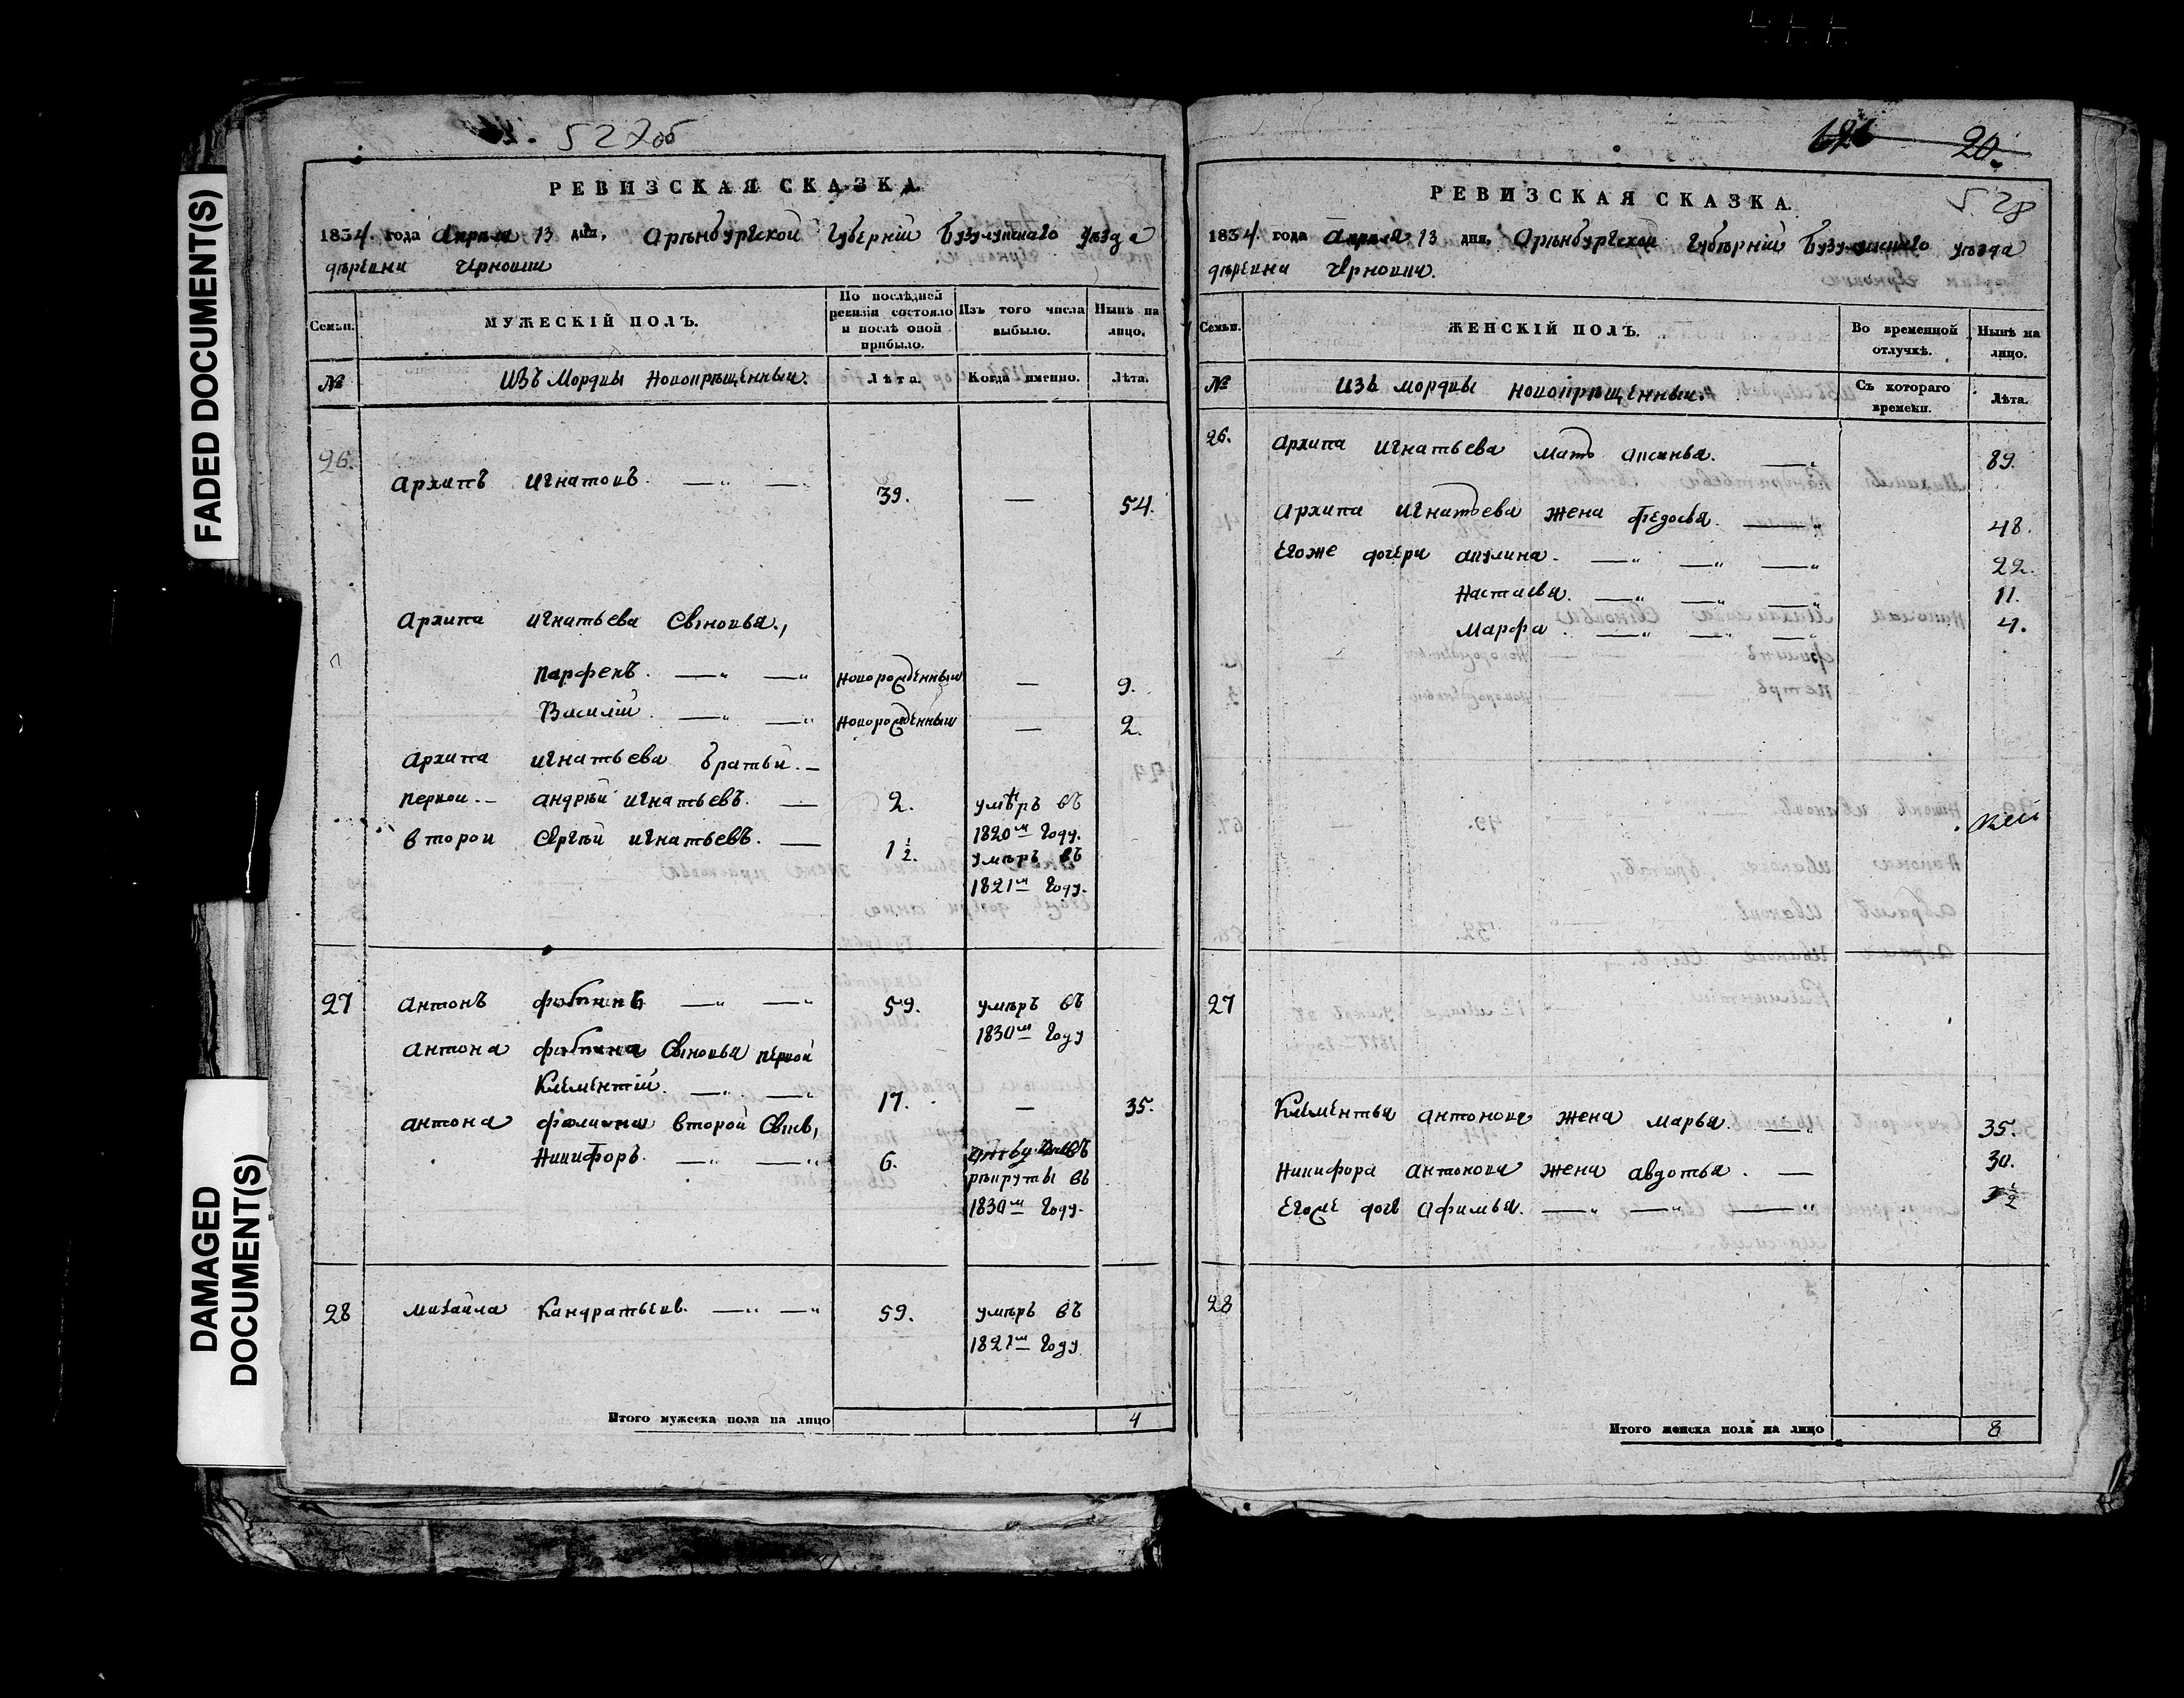 FADED DOCUMENT(S)
DAMAGED DOCUMENT(S)
527об
РЕВИЗСКАЯ СКАЗКА
1834. года Апреля 13 дня, Арѣнбургской Губерніи Бузулукскаго уѣзда
дѣревни Черновки
Семьи.
МУЖЕСКІЙ ПОЛЪ.
По послѣдней ревизіи состояло и послѣ оной прибыло.
Изъ того числа выбыло.
Нынѣ на лицо.
№
Изъ Мордвы Новокрѣщенныи.
Лѣта.
Когда именно.
Лѣта.
26.
Архипъ Игнатовъ. 39. — 54.
Архипа Игнатьева Сыновья,
Парфенъ. новорожденный — 9.
Василій новорожденный — 2.
Архипа Игнатьева братьи.
первои Андрѣй Игнатьевъ. 2. умѣръ въ
1820м году.
второи Сѣргѣй Игнатьевъ. 1½. умѣръ въ
1821м году.
27 Антонъ 59. умѣръ въ
1830м году
Антона Сыновья первои
Климѣнтій 17. — 35.
Антона второй Сынъ,
Никифоръ. 6.
рѣкруты въ
1830м году.
28 Михаила Кандратьевъ. 59. умѣръ въ
1821м году
Итого мужеска пола на лицо 4
20.
528
РЕВИЗСКАЯ СКАЗКА.
1834. года Апреля 13 дня, Арѣнбургской Губѣрніи Бузулукскаго уѣзда
дѣревни Черновки.
Семьи.
ЖЕНСКІЙ ПОЛЪ.
Во временной отлучкѣ.
Нынѣ на лицо.
№
Изъ мордвы новокрѣщенныи.
Съ котораго времени.
Лѣта.
26. Архипа Игнатьева мать Аксинья. 89.
Архипа Игнатьева жена Федосья. 48.
Егоже дочери Акулина. 22.
Настасья. 11.
Марфа. 4.
27
Климентья Антонова жена Марья. 35.
Никифора Антонова жена Авдотья. 30.
Егоже дочь Афимья.
28
Итого женска пола на лицо 8